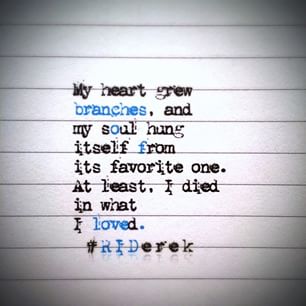 My heart grew
branches, and
my soul hung
itself from
its favorite one.
At least, I died
in what
I loved.
#RIDerek